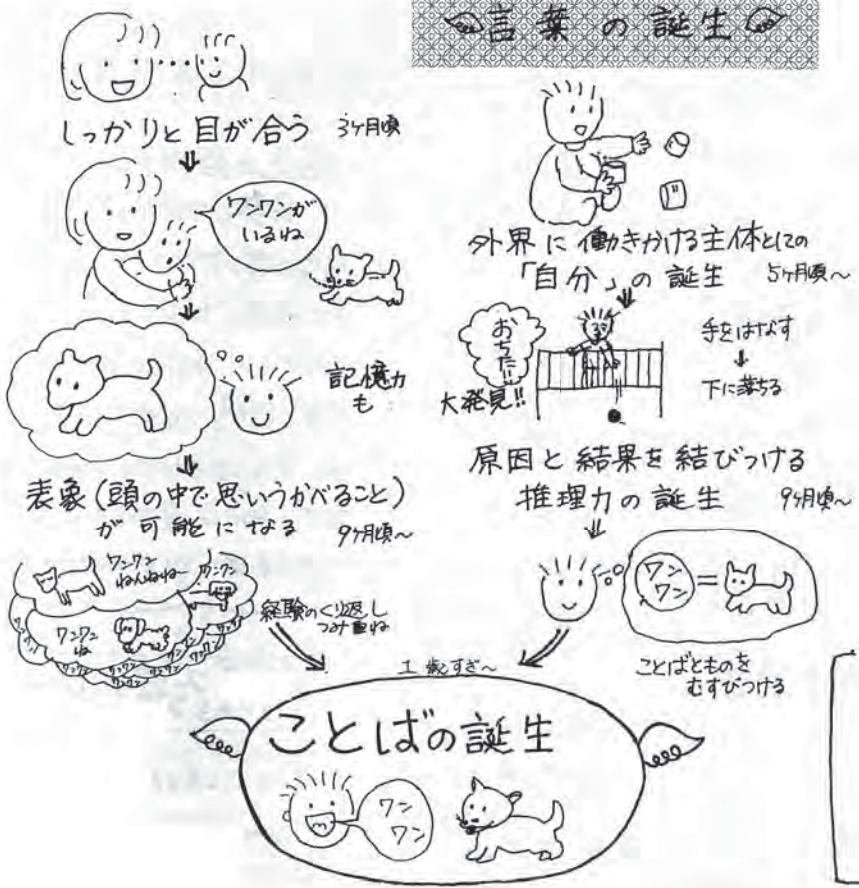 言葉の誕生
しっかりと目が合う 3ヶ月頃
ワンワンが
いるね
記憶力
も
表象(頭の中で思いうかべること)
が可能になる 9ヶ月頃〜
ワンワン
ねんねねー
ワンワン
ワンワン
ね
ワンワン
ワンワン
ワンワン
ワンワン
経験のくり返し
つみ重ね
外界に働きかける主体としての
「自分」の誕生 5ヶ月頃〜
おちた!!
大発見!!
手をはなす
↓
下に落ちる
原因と結果を結びつける
推理力の誕生 9ヶ月頃〜
ワン
ワン
=
ことばとものを
むすびつける
1歳すぎ〜
ことばの誕生
ワン
ワン